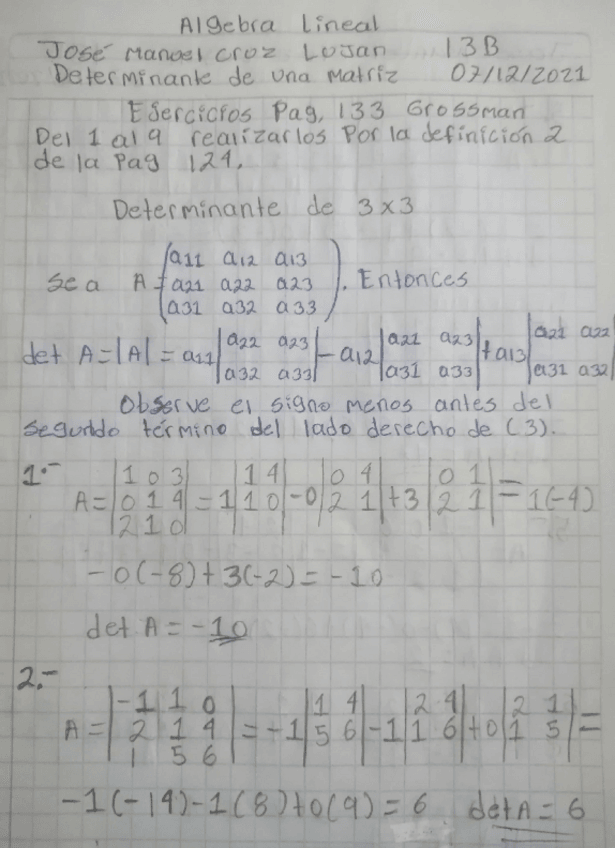 Algebra lineal
José Manuel Cruz Luján 13B
Determinante de una Matriz 07/12/2021
Ejercicios Pag, 133 Grossman
Del 1 al 9 realizarlos Por la definición 2
de la Pag 124.
Determinante de 3x3
a11 a12 a13
Sea A= a21 a22 a23 . Entonces
a31 a32 a33
det A=|A|=a11 |a22 a23| -a12 |a21 a23| +a13 |a21 a22|
|a32 a33| |a31 a33| |a31 a32|
Observe el signo menos antes del
segundo término del lado derecho de (3).
1.-
|1 0 3| |1 4| |0 4| |0 1|
A= |0 1 4| =1 |1 0| -0 |2 1| +3 |2 1| = 1(-4)
|2 1 0|
-0(-8)+3(-2)=-10
det A = -10
2.-
|-1 1 0| |1 4| |2 4| |2 1|
A= |2 1 4| =-1 |5 6| -1 |1 6| +0 |1 5| =
|1 5 6|
-1(-14)-1(8)+0(9)=6 det A = 6